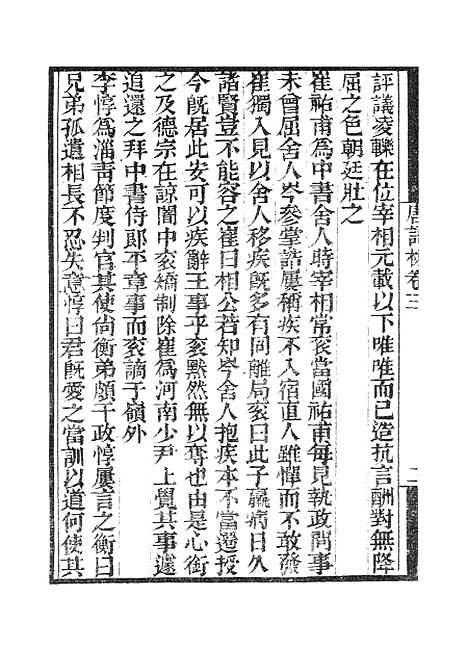 評議凌轢在位宰相元載以下唯唯而已造抗言酬對無降
屈之色朝廷壯之
崔祐甫為中書舍人時宰相常袞當國祐甫每見執政問事
未曾屈舍人岑參掌誥屢稱疾不入宿直人雖憚而不敢發
崔獨入見以舍人移疾既多有同離局袞曰此子羸病日久
諸賢豈不能容之崔曰相公若知岑舍人抱疾本不當遷授
今既居此安可以疾辭王事乎袞黙然無以奪也由是心銜
之及德宗在諒闇中袞矯制除崔為河南少尹上覺其事遽
追還之拜中書侍郎平章事而袞謫于嶺外
李惇為淄青節度判官其使尙衡弟頗干政惇屢言之衡曰
兄弟孤遺相長不忍失意惇曰君既愛之當訓以道何使其
唐語林卷三
二